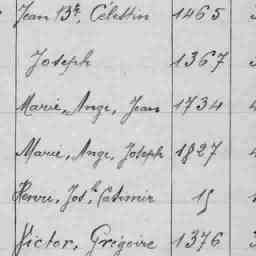 Jean Bte, Célestin 1465
Joseph 1367
Marie, Ange, Jean 1734
Marie, Ange, Joseph 1827
Henri, Josh, Casimir 15
Victor, Grégoire 1376